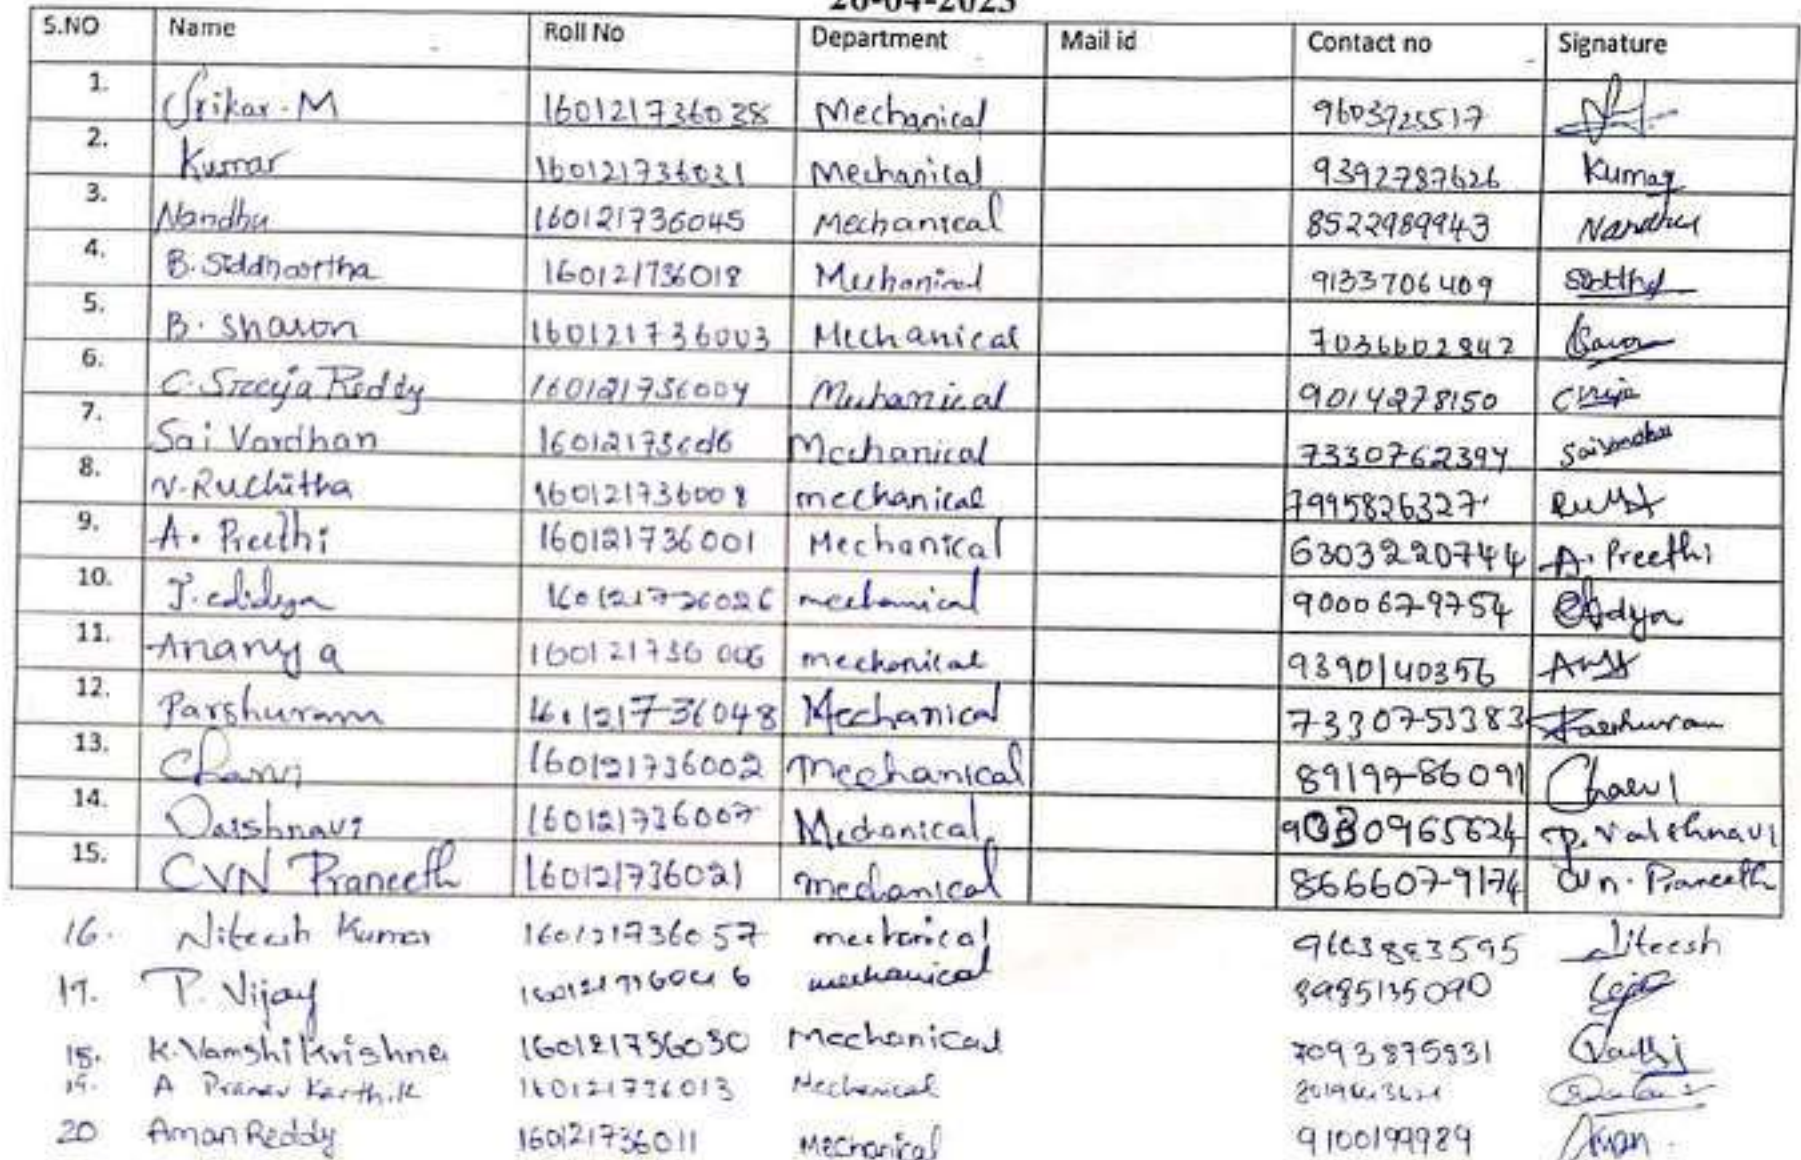 26-04-2023
S.NO Name Roll No Department Mail id Contact no Signature
1. Srikar-M 160121736038 Mechanical 9603925517
2. Kumar 160121736031 Mechanical 9392787626 Kumar
3. Nandhu 160121736045 Mechanical 8522989943 Nandhu
4. B.Siddhaartha 160121736018 Mechanical 9133706409
5. B. Sharon 160121736003 Mechanical 7036602842
6. C.Sreeja Reddy 160121736004 Mechanical 9014278150
7. Sai Vardhan Mechanical 7330762394
8. V.Ruchitha 160121736008 mechanical 7995826327
9. A. Preethi 160121736001 Mechanical 6303220744 A. Preethi
10. J.edidya 160121736026 mechanical 9000679754
11. Ananya 160121736006 mechanical 9390140356
12. Parshuram 160121736048 Mechanical 7330753383 Parshuram
13. Charvi 160121736002 Mechanical 8919986091 Charvi
14. Vaishnavi 160121736007 Mechanical 9030965624 P. Vaishnavi
15. CVN Praneeth 160121736021 mechanical 8666079174 CVn. Praneeth
16. Niteesh Kumar 160121736057 mechanical 9603883595 Niteesh
17. P. Vijay mechanical 8985135090
18. K.Vamshi Krishna 160121736030 Mechanical 7093875831
19. A Pranav Karthik 160121736013 Mechanical
20 Aman Reddy 160121736011 Mechanical 9100199989 Aman